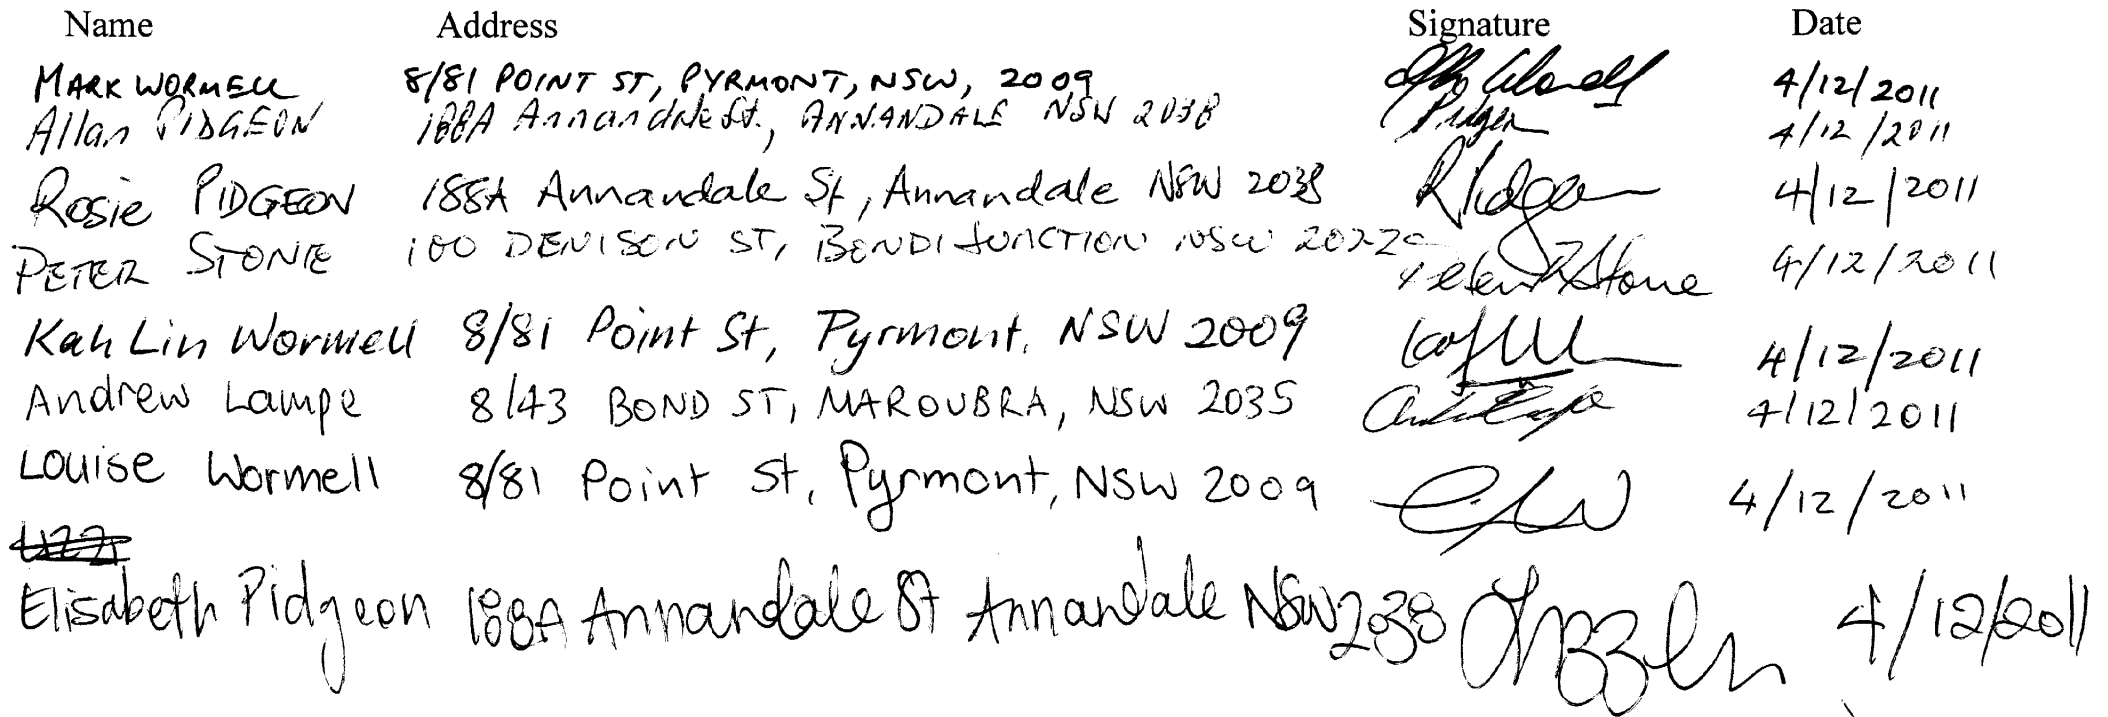 Name Address Signature Date
MARK WORMELL 8/81 POINT ST, PYRMONT, NSW, 2009 4/12/2011
Allan PIDGEON 188A Annandale St., ANNANDALE NSW 2038 Pidgeon 4/12/2011
Rosie PIDGEON 188A Annandale St, Annandale NSW 2038 R Pidgeon 4/12/2011
PETER STONE 100 DENISON ST, BONDI JUNCTION NSW 2022 Peter Stone 4/12/2011
Kah Lin Wormell 8/81 Point St, Pyrmont, NSW 2009 4/12/2011
Andrew Lampe 8/43 BOND ST, MAROUBRA, NSW 2035 4/12/2011
Louise Wormell 8/81 Point St, Pyrmont, NSW 2009 4/12/2011
Elisabeth Pidgeon 188A Annandale St Annandale NSW 2038 4/12/2011